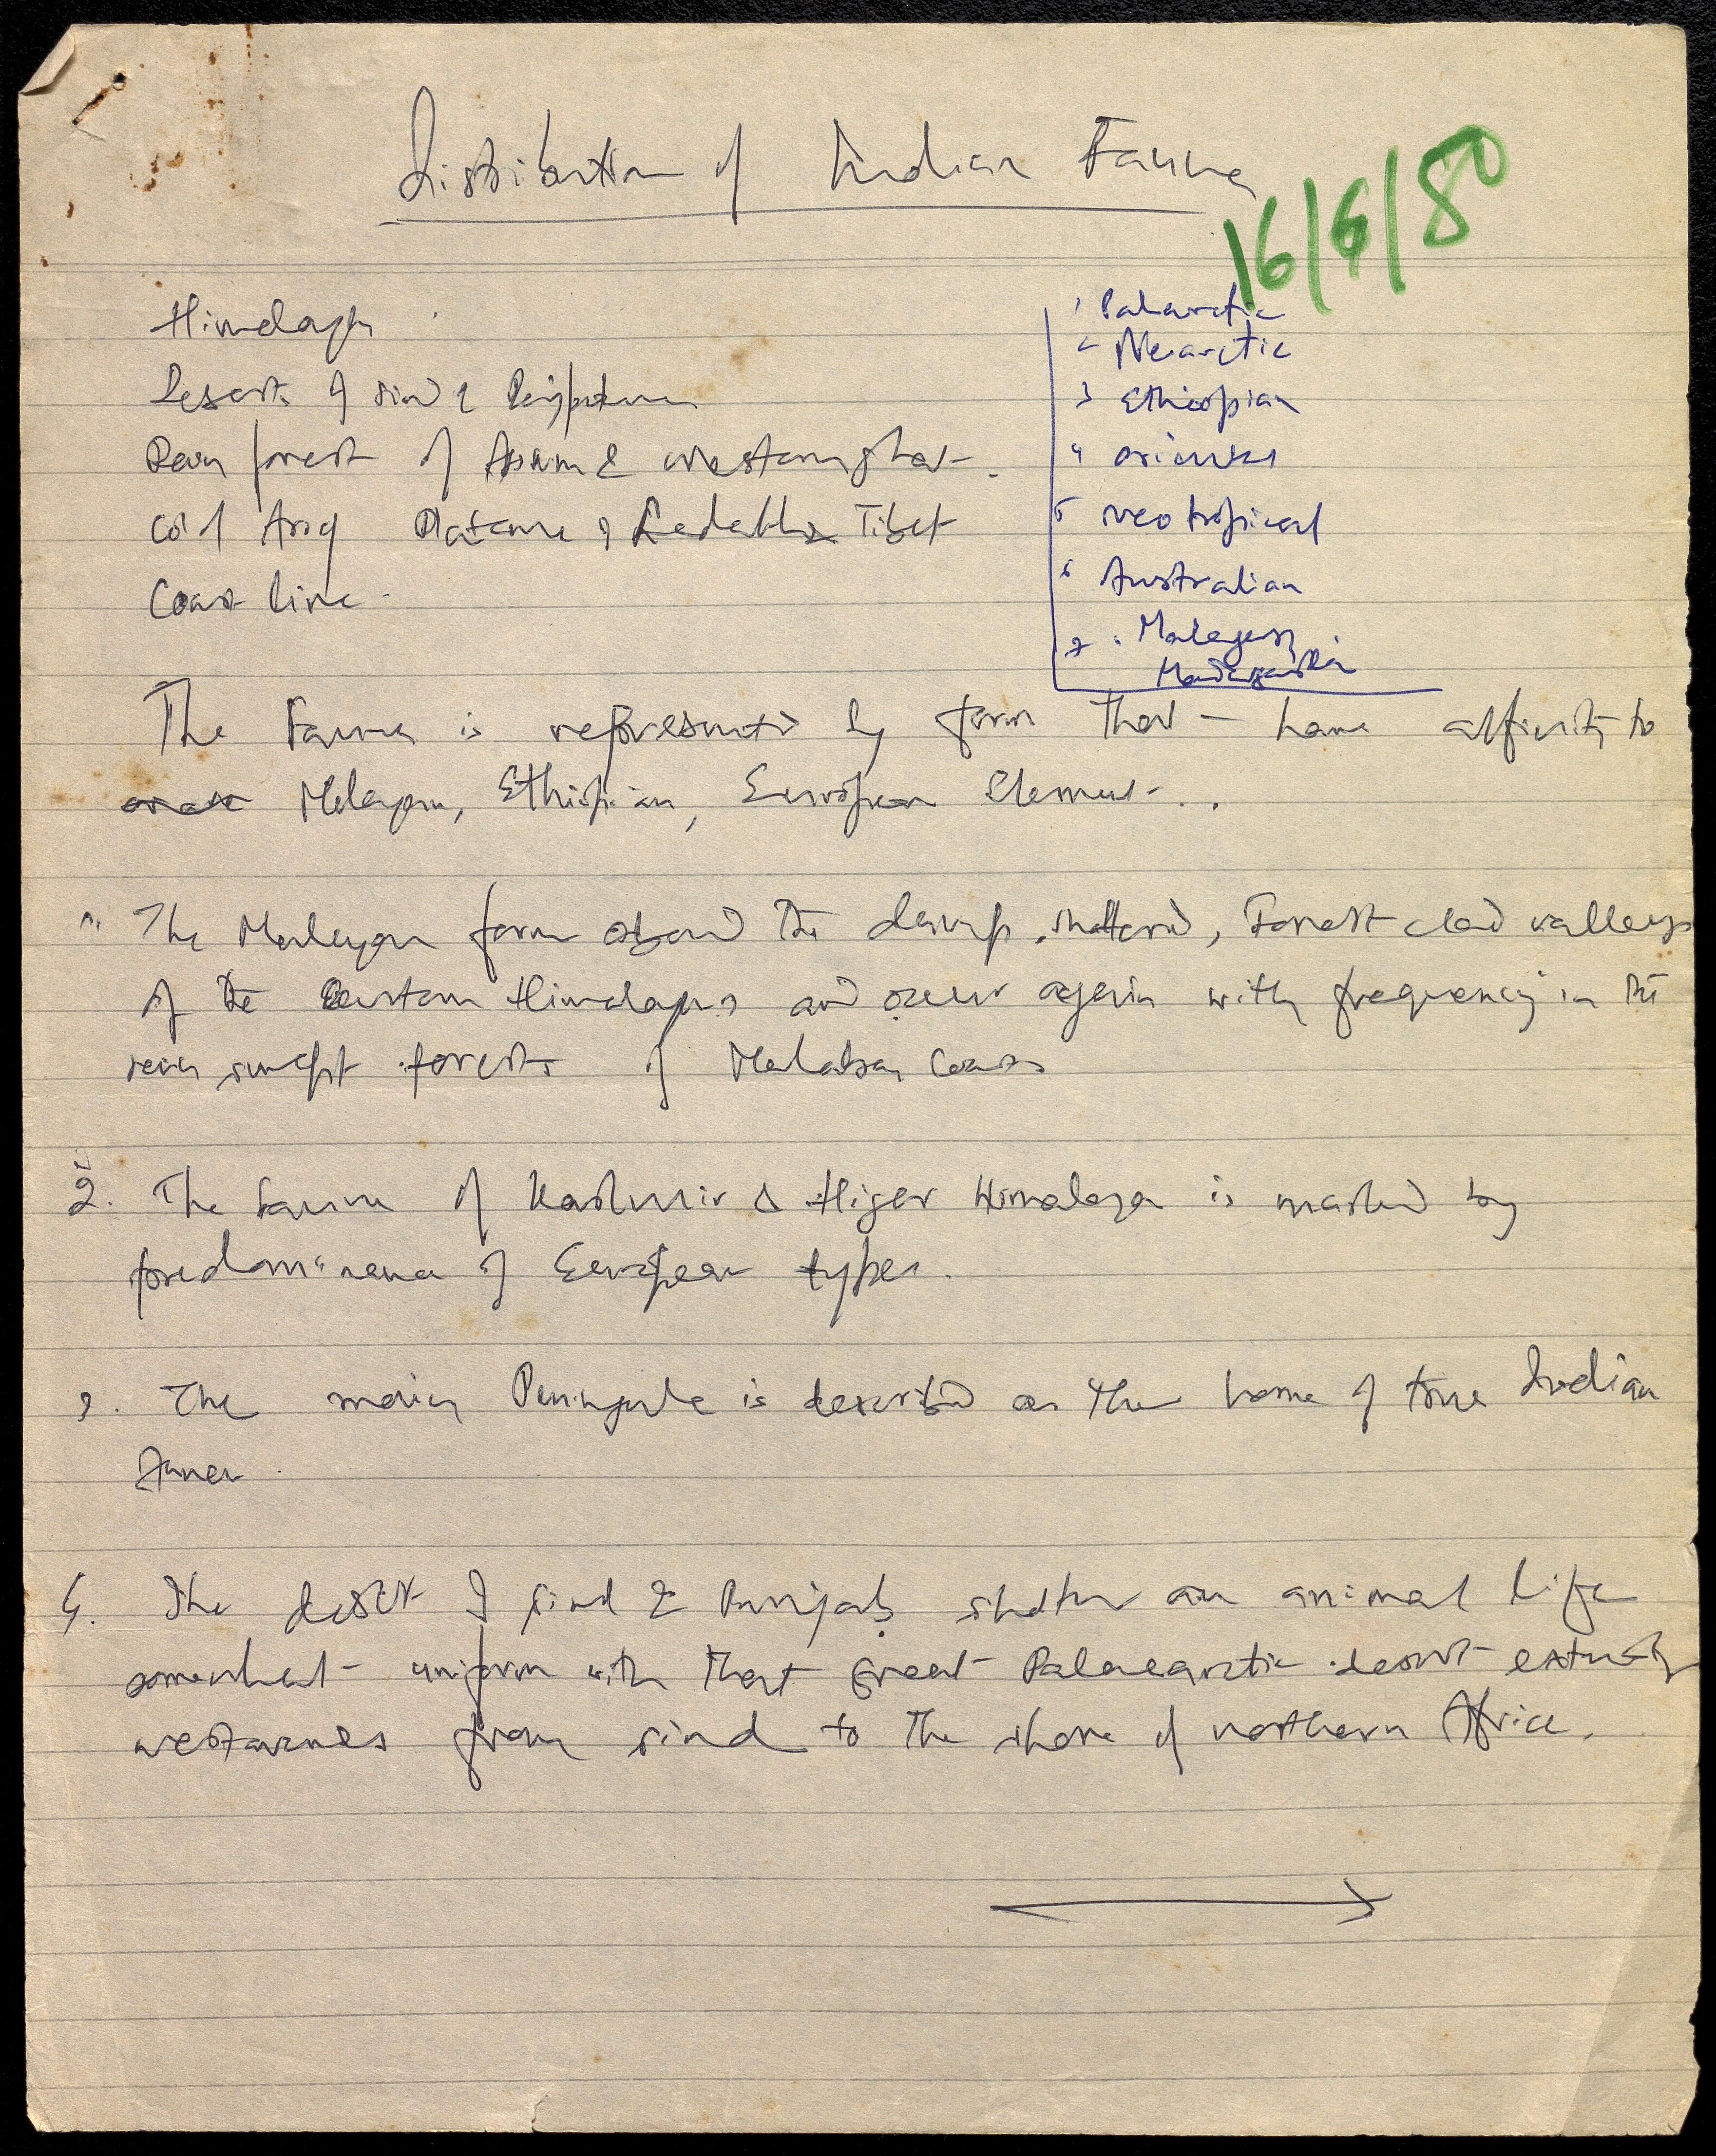 Distribution of Indian Fauna
16/6/80
Himalaya
Desert of Sind & Rajputana
Rain forest of Assam & Western ghat.
Cold Arid Plateau of Ladakh & Tibet
Coast line.
1 Palearctic
2 Nearctic
3 Ethiopian
4 oriental
5 neotropical
6 Australian
7. Malagasy
Madagaskar
The Fauna is represented by form that have affinity to
Malayan, Ethiopian, European Element..
1. The Malayan form abound the damp, sheltered, Forest clad valleys
of the Eastern Himalayas and occur again with frequency in the
rain swept forests of Malabar Coast
2. The fauna of Kashmir & Higer Himalaya is marked by
predominance of European types.
3. The main Peninsula is described as the home of true Indian
Fauna.
4. The desert of Sind & Punjab shelter an animal life
somewhat uniform with that great Palaearctic desert extending
westwards from Sind to the shore of northern Africa.